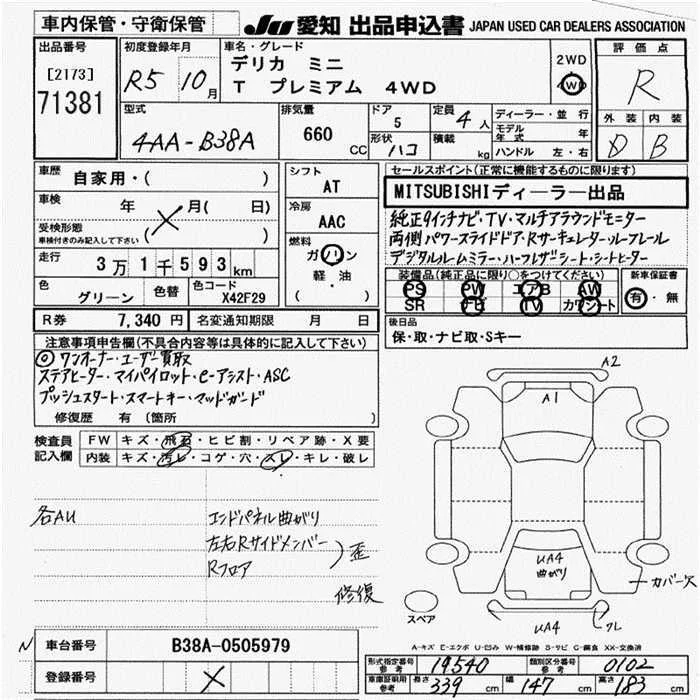 車内保管・守衛保管
JU 愛知 出品申込書 JAPAN USED CAR DEALERS ASSOCIATION
出品番号
[2173]
71381
初度登録年月
R5 10月
車名・グレード
デリカ ミニ
T プレミアム 4WD
2WD
4WD
評価点
R
外装 内装
D B
型式
4AA-B38A
排気量
660
CC
ドア
5
形状
ハコ
定員
4人
積載
kg
ディーラー・並行
モデル年式 年
ハンドル 左・右
車歴
自家用・( )
車検
年 X 月( 日)
受検形態
車検付きのみ記入して下さい
( )
走行
3万1千593km
色
グリーン
色替
色コード
X42F29
シフト
AT
冷房
AAC
燃料
ガソリン
軽・油
( )
セールスポイント(正常に機能するものに限ります)
MITSUBISHIディーラー出品
純正9インチナビ・TV・マルチアラウンドモニター
両側パワースライドドア・Rサーキュレーター・ルーフレール
デジタルルームミラー・ハーフレザーシート・シートヒーター
装備品(純正品に限り○をつけてください)
PS PW エアB AW
SR ナビ TV カワシート
新車保証書
有・無
R券 7,340円
名変通知期限 月 日
後日品
保・取・ナビ取・Sキー
注意事項申告欄(不具合内容等は具体的に記入して下さい)
◎ワンオーナー・ユーザー買取
ステアヒーター・マイパイロット・e-アシスト・ASC
プッシュスタート・スマートキー・マッドガード
修復歴 有 (箇所 )
検査員記入欄
FW キズ・飛石・ヒビ割・リペア跡・X要
内装 キズ・汚レ・コゲ・穴・スレ・キレ・破レ
各AU
エンドパネル曲がり
左右Rサイドメンバー
Rフロア
)歪
修復
A2
A1
UA4
曲がり
カバー欠
スペア
UA4
ワレ
A-キズ E-エクボ U-凹み W-補修跡 S-サビ C-腐食 XX-交換済
N
車台番号 B38A-0505979
登録番号 X
型式指定番号 参考 19540
類別区分番号 参考 0102
車庫証明用 参考 長さ 339cm 幅 147cm 高さ 183cm